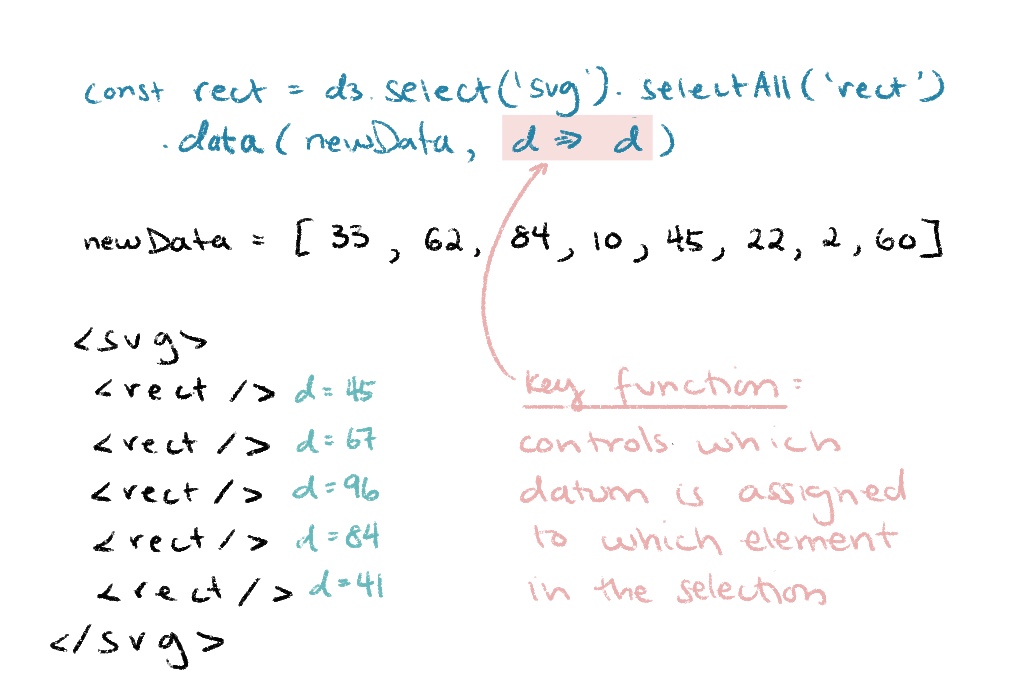 const rect = d3.select('svg').selectAll('rect')
.data(newData, d => d)
newData = [33, 62, 84, 10, 45, 22, 2, 60]
<svg>
<rect /> d=45
<rect /> d=67
<rect /> d=96
<rect /> d=84
<rect /> d=41
</svg>
key function:
controls which
datum is assigned
to which element
in the selection